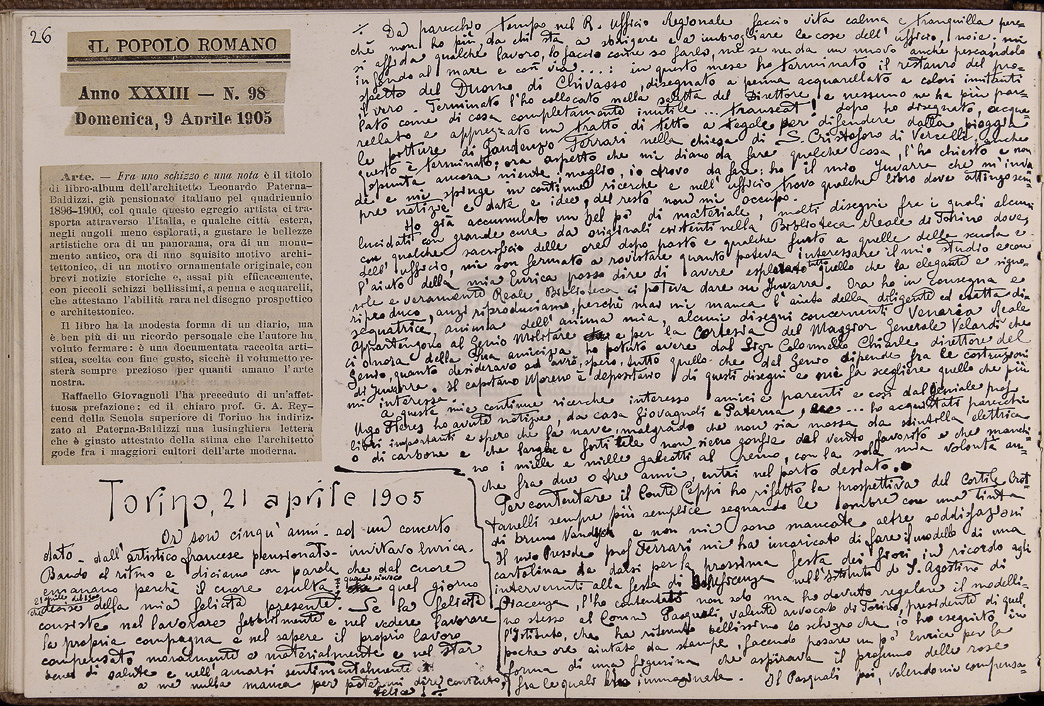 26
IL POPOLO ROMANO
Anno XXXIII — N. 98
Domenica, 9 Aprile 1905
Arte. — Fra uno schizzo e una nota è il titolo
di libro-album dell'architetto Leonardo Paterna-
Baldizzi, già pensionato italiano pel quadriennio
1896-1900, col quale questo egregio artista ci tra-
sporta attraverso l'Italia, e qualche città estera,
negli angoli meno esplorati, a gustare le bellezze
artistiche ora di un panorama, ora di un monu-
mento antico, ora di uno squisito motivo archi-
tettonico, di un motivo ornamentale originale, con
brevi notizie storiche e, assai più efficacemente,
con piccoli schizzi bellissimi, a penna e acquarelli,
che attestano l'abilità rara nel disegno prospettico
e architettonico.
Il libro ha la modesta forma di un diario, ma
è ben più di un ricordo personale che l'autore ha
voluto fermare: è una documentata raccolta arti-
stica, scelta con fine gusto, sicchè il volumetto re-
sterà sempre prezioso per quanti amano l'arte
nostra.
Raffaello Giovagnoli l'ha preceduto di un'affet-
tuosa prefazione; ed il chiaro prof. G. A. Rey-
cend della Scuola superiore di Torino ha indiriz-
zato al Paterna-Baldizzi una lusinghiera lettera
che è giusto attestato della stima che l'architetto
gode fra i maggiori cultori dell'arte moderna.
Torino, 21 aprile 1905
Or son cinqu'anni - ad un concerto
dato - dall'artistico francese pensionato - invitavo Enrica.
Bando al ritmo e diciamo con parole che dal cuore
emanano perchè il cuore esulta quel giorno
decise della mia felicità presente. Se la felicità
consiste nel lavorare febbrilmente e nel vedere lavorare
la propria compagna e nel sapere il proprio lavoro
compensato, moralmente e materialmente e nel star
bene di salute e nell'amarsi sentimentalmente
a me nulla manca per potermi dire contento,
felice!
Da parecchio tempo nel R. Ufficio Regionale faccio vita calma e tranquilla per-
chè non ho più da chi sta a dirigere e a imbrogliare le cose dell'ufficio, noie. mi
si affida qualche lavoro, lo faccio come so farlo, me se ne dà un nuovo anche pescandolo
in fondo al mare e così via...: in questo mese ho terminato il restauro del pro-
spetto del Duomo di Chivasso, disegnato a penna acquarellato a colori imitanti
il vero. Terminato l'ho collocato nella saletta del Direttore e nessuno ne ha più par-
lato come di cosa completamente inutile ... transeat! dopo ho disegnato, acqua-
rellato e apprezzato un tratto di tetto a tegole per difendere dalla pioggia
le pitture di Gaudenzio Ferrari nella chiesa di S. Cristoforo di Vercelli, anche
questo è terminato; ora aspetto che mi diano da fare qualche cosa, l'ho chiesto e non
spunta ancora niente, meglio, io trovo da fare: ho il mio Juvara che m'inva-
de e mi spinge in continue ricerche e nell'ufficio trovo qualche libro dove attingo sem-
pre notizie e date e idee, del resto non mi occupo.
Ho già accumulato un bel pò di materiale molti disegni fra i quali alcuni
lucidati con grande cura da originali esistenti nella Biblioteca Reale di Torino dove,
con qualche sacrificio delle ore dopo pasto e qualche furto a quelle della scuola e
dell'ufficio, mi son fermato a rovistare quanto poteva interessare il mio studio e con
l'aiuto della mia Enrica posso dire di avere esplorato quello che la elegante e signo-
rile e veramente Reale Biblioteca ci poteva dare su Juvarra. Ora ho in consegna e
riproduco, anzi riproduciamo, perchè mai mi manca l'aiuto della diligente ed esatta di-
segnatrice, anima dell'anima mia, alcuni disegni concernenti Venaria Reale
appartengono al Genio Militare e per la cortesia del Maggior Generale Velardi che
ci onora della sua amicizia ho potuto avere dal Sigr Colonnello Chiarle direttore del
Genio, quanto desideravo ed avrò, spero, tutto quello che dal Genio dipende fra le costruzioni
di Juvarra. Il capitano Moreno è depositario di questi disegni e mi fa scegliere quello che più
mi interessa.
A queste mie continue ricerche interesso amici e parenti e così dal geniale prof.
Ugo Fleres ho avute notizie, da casa Giovagnoli e Paterna, ... ho acquistati parecchi
libri importanti e spero che la nave, malgrado che non sia mossa da scintilla elettrica
o di carbone e che larghe e forti tele non sieno gonfie dal vento favorito e che manchi-
no i mille e mille galeotti al remo, con la sola mia volontà an-
che fra due o tre anni entri nel porto desiato.
Per contentare il Conte Ceppi ho rifatto la prospettiva del cortile Crot-
tanelli sempre più semplice segnando le ombre con una tinta
di bruno Vandyck e non mi sono mancate altre soddisfazioni
Il mio Preside prof. Ferrari mi ha incaricato di fare il modello di una
cartolina da darsi per la prossima festa dei fiori in ricordo agli
intervenuti alla festa di Beneficenza nell'Istituto di S. Agostino di
Piacenza, l'ho contentato non solo ma ho dovuto regalare il modelli-
no stesso al Comm Pasquali, valente avvocato di Torino, presidente di quel
l'Istituto, che ha ritenuto bellissimo lo schizzo che io ho eseguito in
poche ore aiutato da stampe, facendo posare un po' Enrica per la
forma di una figurina che aspirava il profumo delle rose
fra le quali era immaginata. Il Pasquali poi, volendomi compensa-